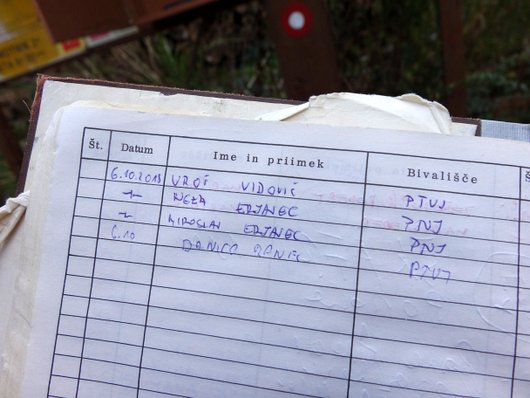 Št. Datum Ime in priimek Bivališče Š
6.10.2013 UROŠ VIDOVIČ PTUJ
-"- NEŽA ERJAVEC PNJ
-"- MIROSLAV ERJAVEC PNJ
6.10 DANICA PTUJ